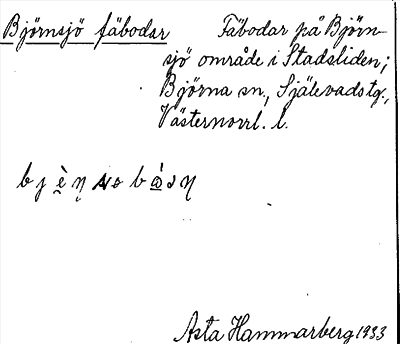 Björnsjö fäbodar
Fäbodar på Björn-
sjö område i Stadsliden;
Björna sn., Själevads tg.,
Västernorrl. l.
Asta Hammarberg 1933